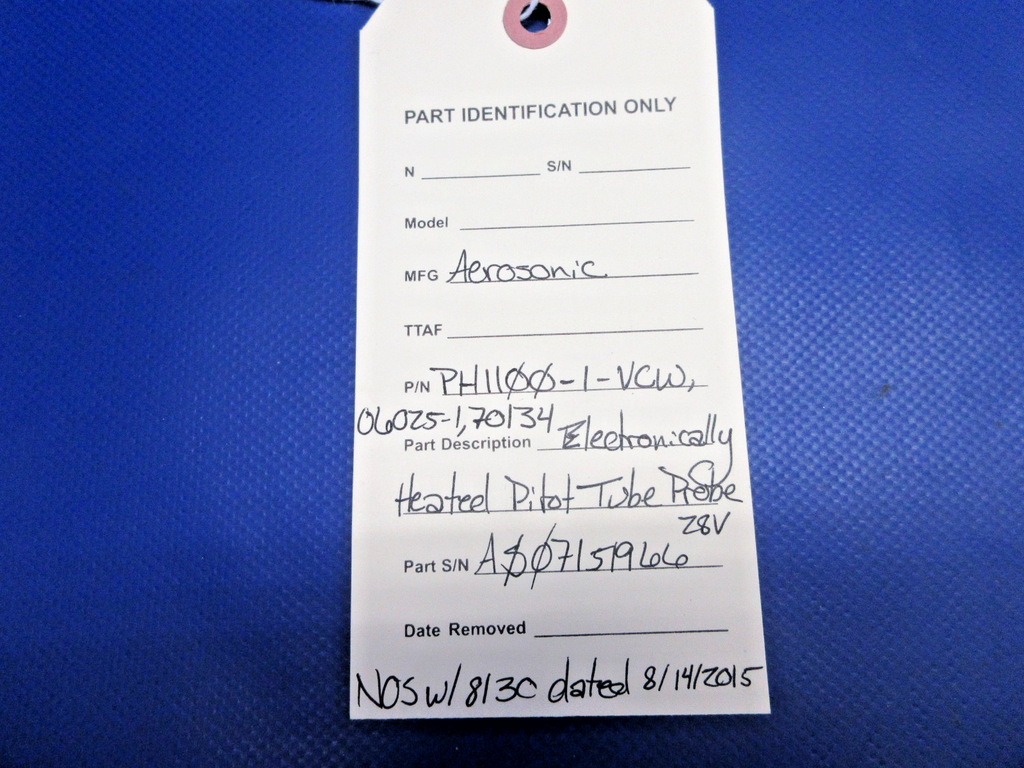 PART IDENTIFICATION ONLY
N ________ S/N ________
Model ________
MFG Aerosonic
TTAF ________
P/N PH1100-1-VCW,
06025-1,70134
Part Description Electronically
Heated Pitot Tube Probe
28V
Part S/N
Date Removed ________
NOS w/ 8130 dated 8/14/2015